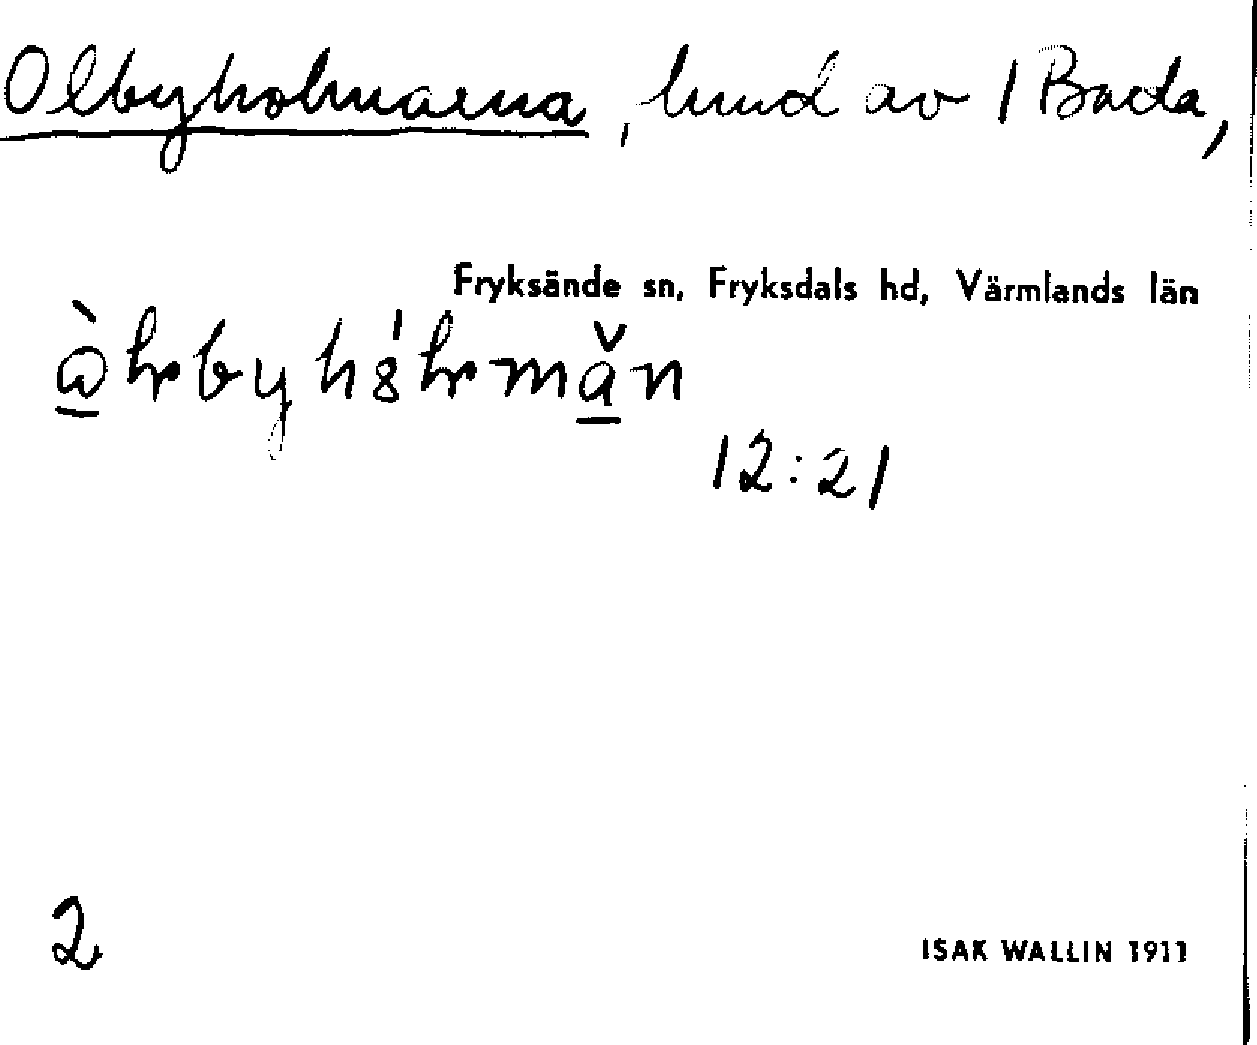 Olbyholmarna, lund av 1 Bada,
Fryksände sn, Fryksdals hd, Värmlands län
12:21
2
ISAK WALLIN 1911